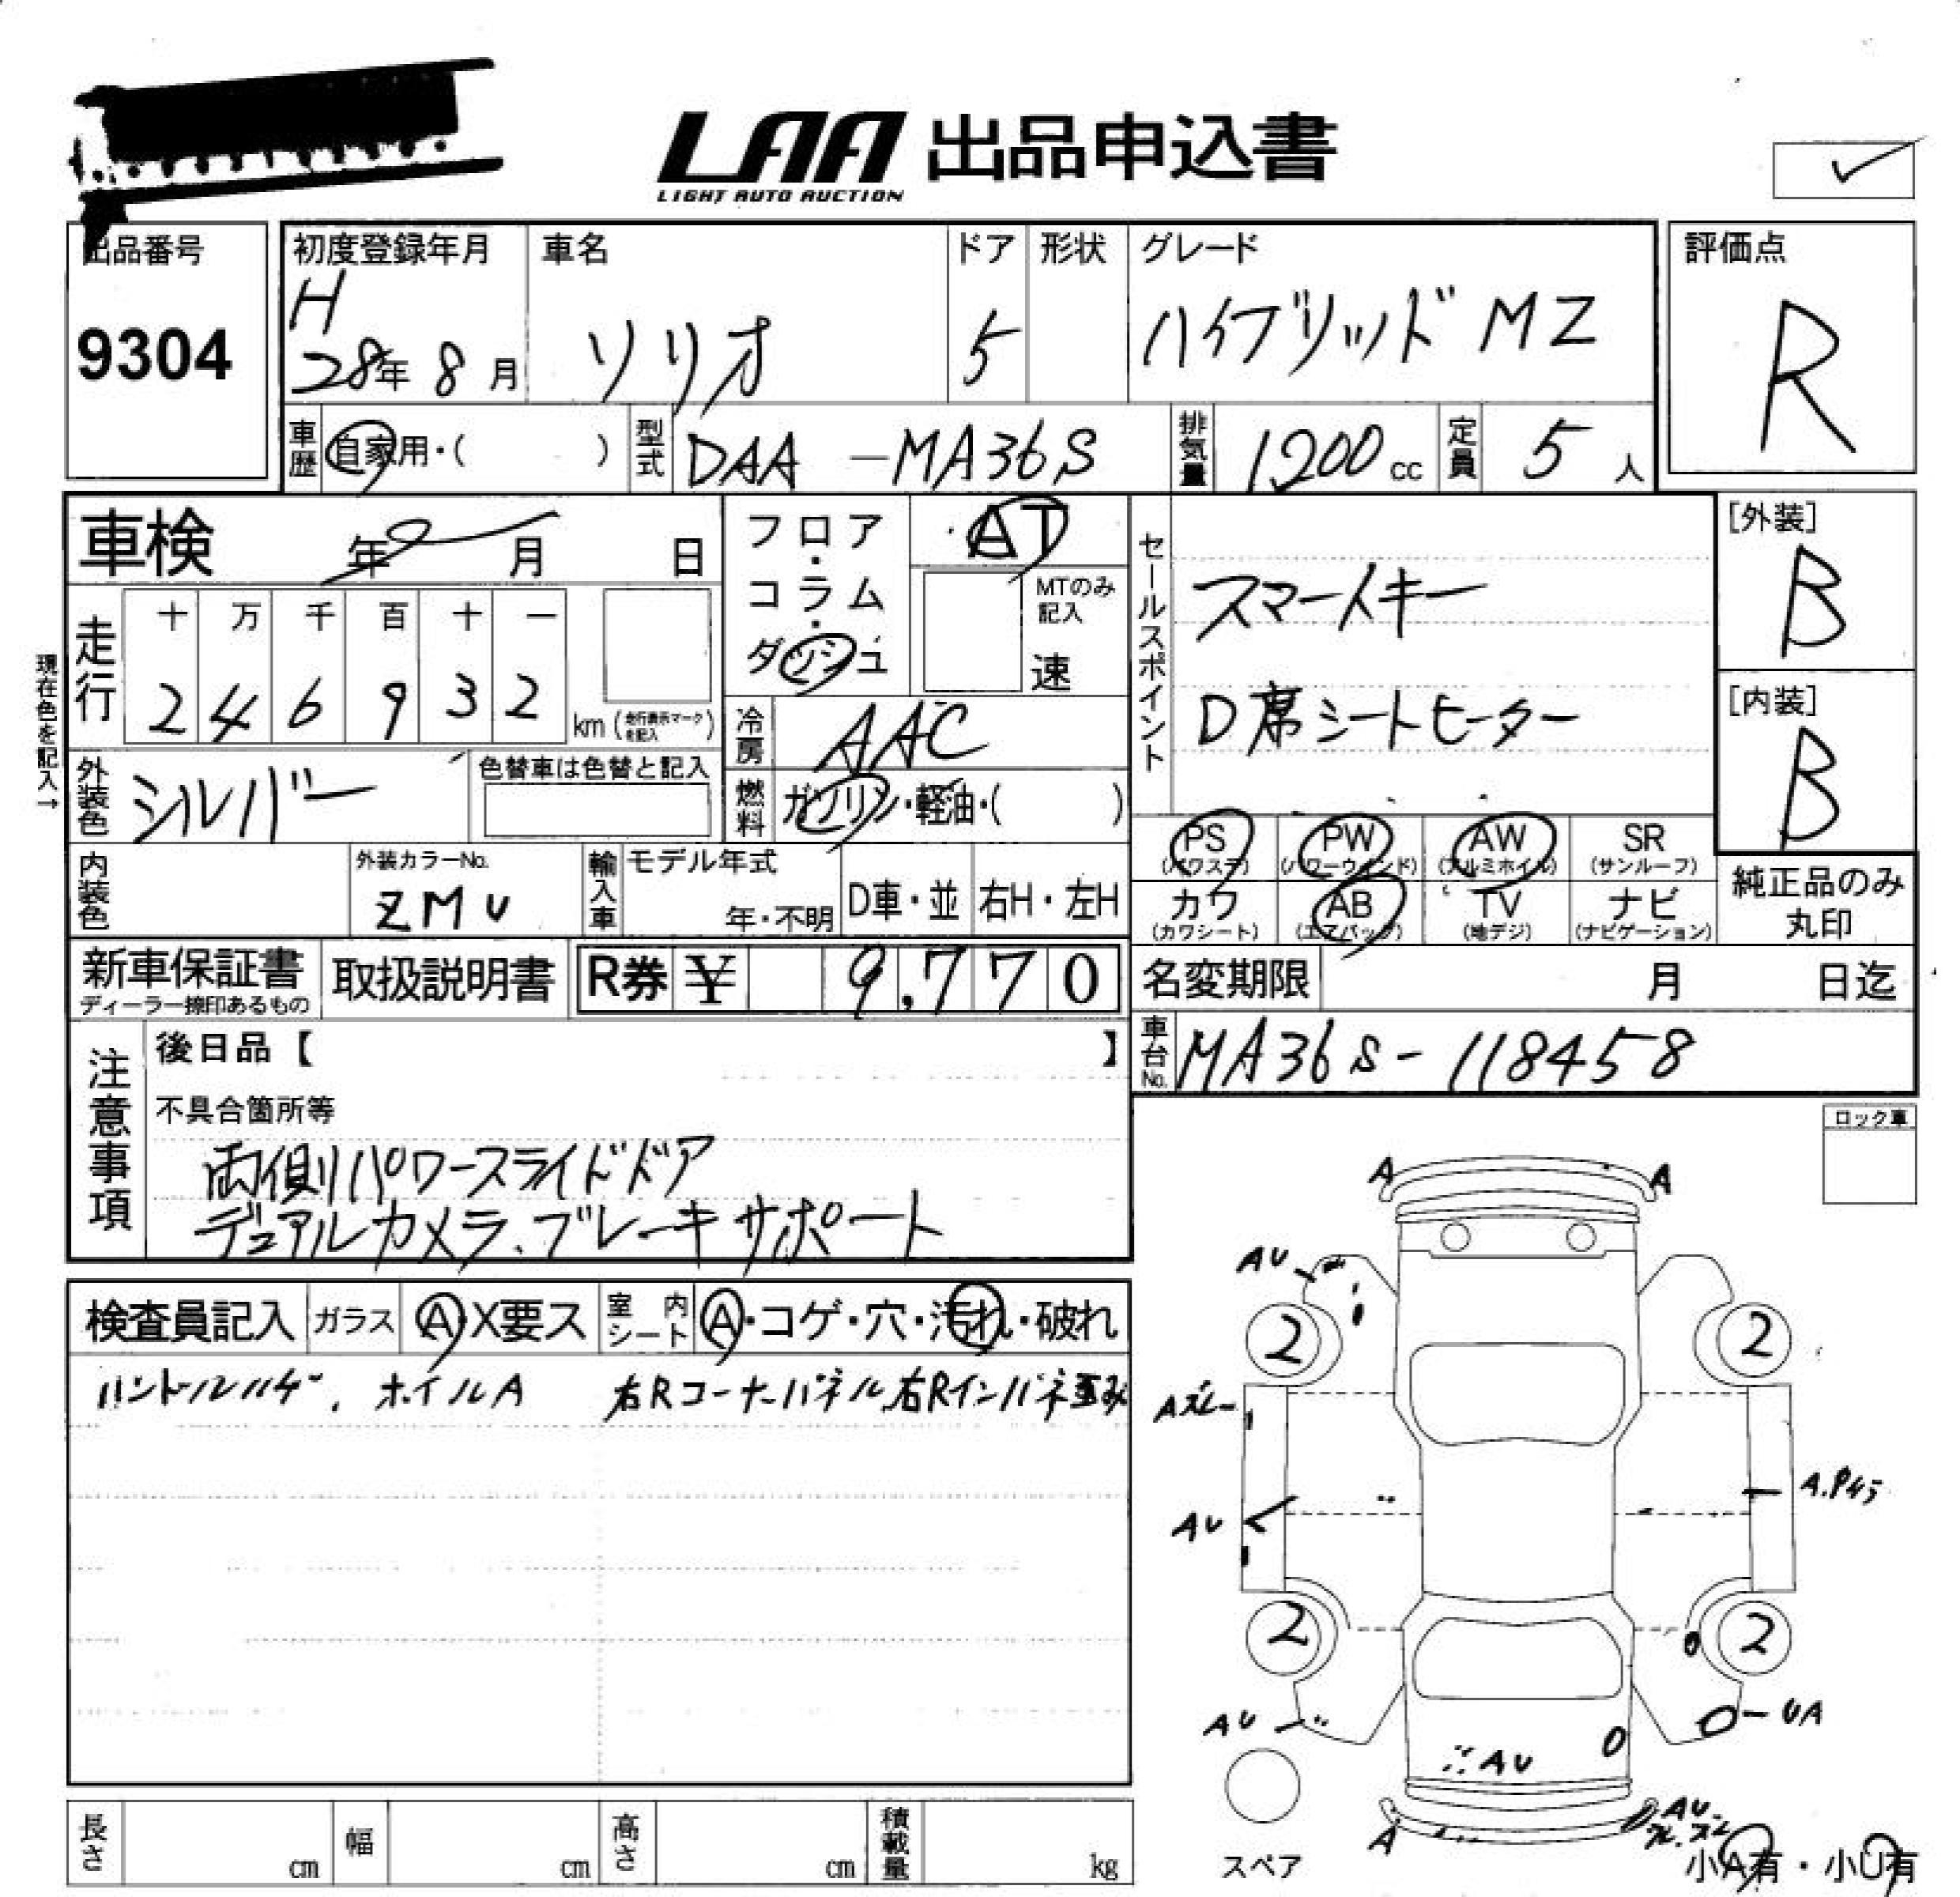 LAA 出品申込書
LIGHT AUTO AUCTION
出品番号
9304
初度登録年月
H
28年 8月
車名
ソリオ
ドア
5
形状
グレード
ハイブリッド MZ
評価点
R
車歴 自家用・( )
型式 DAA -MA36S
排気量 1200 cc
定員 5 人
車検 年 月 日
フロア・コラム・ダッシュ
AT
MTのみ記入
速
セールスポイント
スマートキー
D席シートヒーター
[外装]
B
[内装]
B
現在色を記入→
走行
十 万 千 百 十 一
2 4 6 9 3 2 km (走行表示マークを記入)
冷房 AAC
外装色 シルバー
色替車は色替と記入
燃料 ガソリン・軽油・( )
PS (パワステ) PW (パワーウインド) AW (アルミホイル) SR (サンルーフ)
カワ (カワシート) AB (エアバッグ) TV (地デジ) ナビ (ナビゲーション)
純正品のみ丸印
内装色
外装カラーNo.
ZMU
輸入車 モデル年式
年・不明
D車・並
右H・左H
新車保証書
ディーラー捺印あるもの
取扱説明書
R券 ¥ 9,770
名変期限 月 日迄
車台No. MA36S-118458
注意事項
後日品【 】
不具合箇所等
両側パワースライドドア
デュアルカメラ、ブレーキサポート
ロック車
検査員記入 ガラス A・X要ス 室内シート A・コゲ・穴・汚れ・破れ
ハンドルハゲ、ホイルA 右Rコーナーパネル、右Rインパネ歪み
A A
AU
2 2
Aズレ
A.
AU
2 2
AU
UA
AU
A
AU
スペア
小A有・小U有
長さ cm 幅 cm 高さ cm 積載量 kg